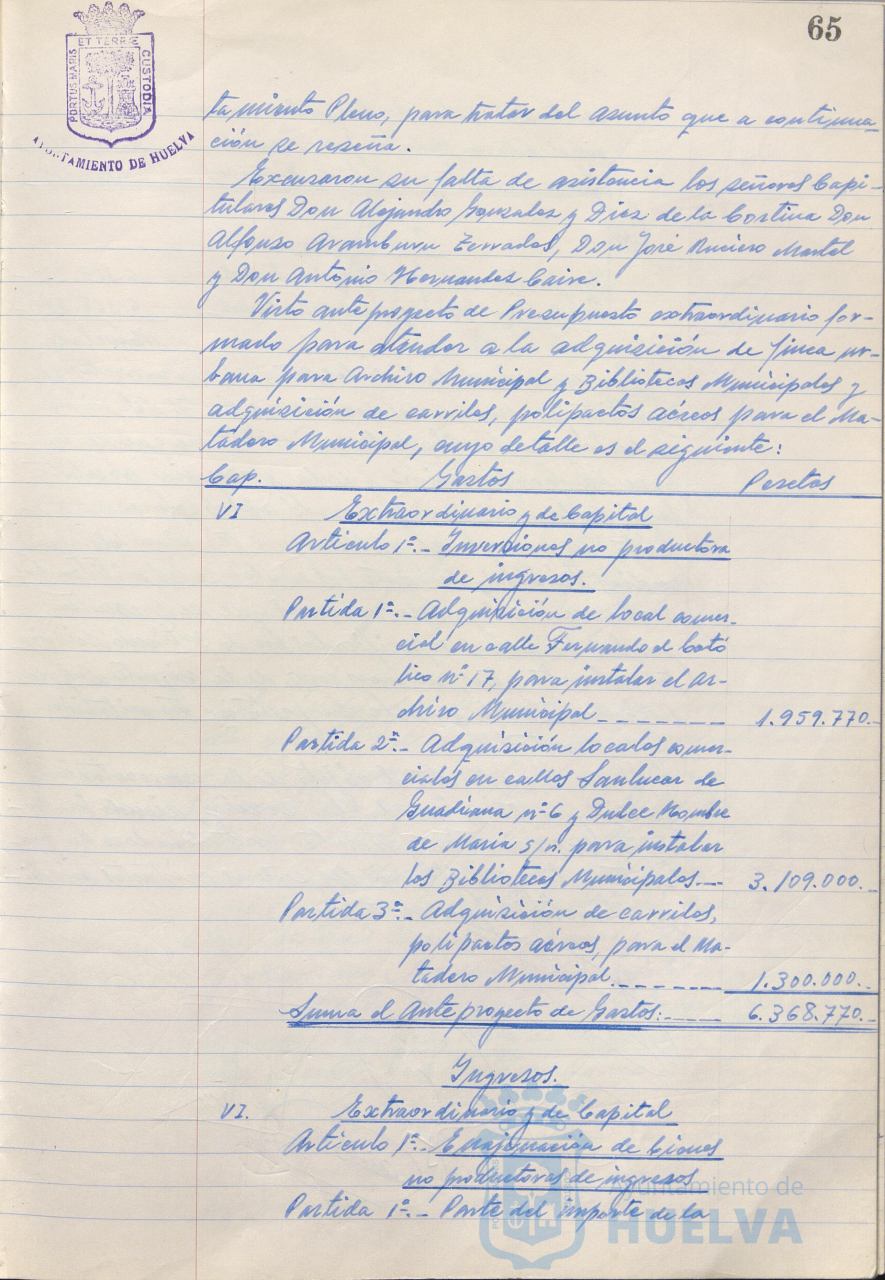 65
ET TERRÆ
PORTUS MARIS
CUSTODIA
AYUNTAMIENTO DE HUELVA
tamiento Pleno, para tratar del asunto que a continua-
ción se reseña.
Excusaron su falta de asistencia los señores Capi-
tulares Don Alejandro Gonzalez y Diez de la Cortina Don
Alfonso Aramburu Terrades, Don José Ruciero Martel
y Don Antonio Hernandez Caire.
Visto anteproyecto de Presupuesto extraordinario for-
mado para atender a la adquisición de finca ur-
bana para Archivo Municipal y Bibliotecas Municipales y
adquisición de carriles, polipactos aéreos para el Ma-
tadero Municipal, cuyo detalle es el siguiente:
Cap. Gastos Pesetas
VI Extraordinario y de Capital
Articulo 1º.- Inversiones no productora
de ingresos.
Partida 1ª.- Adquisición de local comer-
cial en calle Fernando el Cató
lico nº 17, para instalar el Ar-
chivo Municipal 1.959.770.-
Partida 2ª.- Adquisición locales comer-
ciales en calles Sanlucar de
Guadiana nº 6 y Dulce Nombre
de Maria s/n. para instalar
las Bibliotecas Municipales.-- 3.109.000.-
Partida 3ª.- Adquisición de carriles,
polipactos aéreos, para el Ma-
tadero Municipal. 1.300.000.-
Suma el Anteproyecto de Gastos: 6.368.770.-
Ingresos.
VI. Extraordinario y de Capital
Articulo 1º.- Enajenación de bienes
no productores de ingresos
Partida 1ª.- Parte del importe de la
Ayuntamiento de
HUELVA